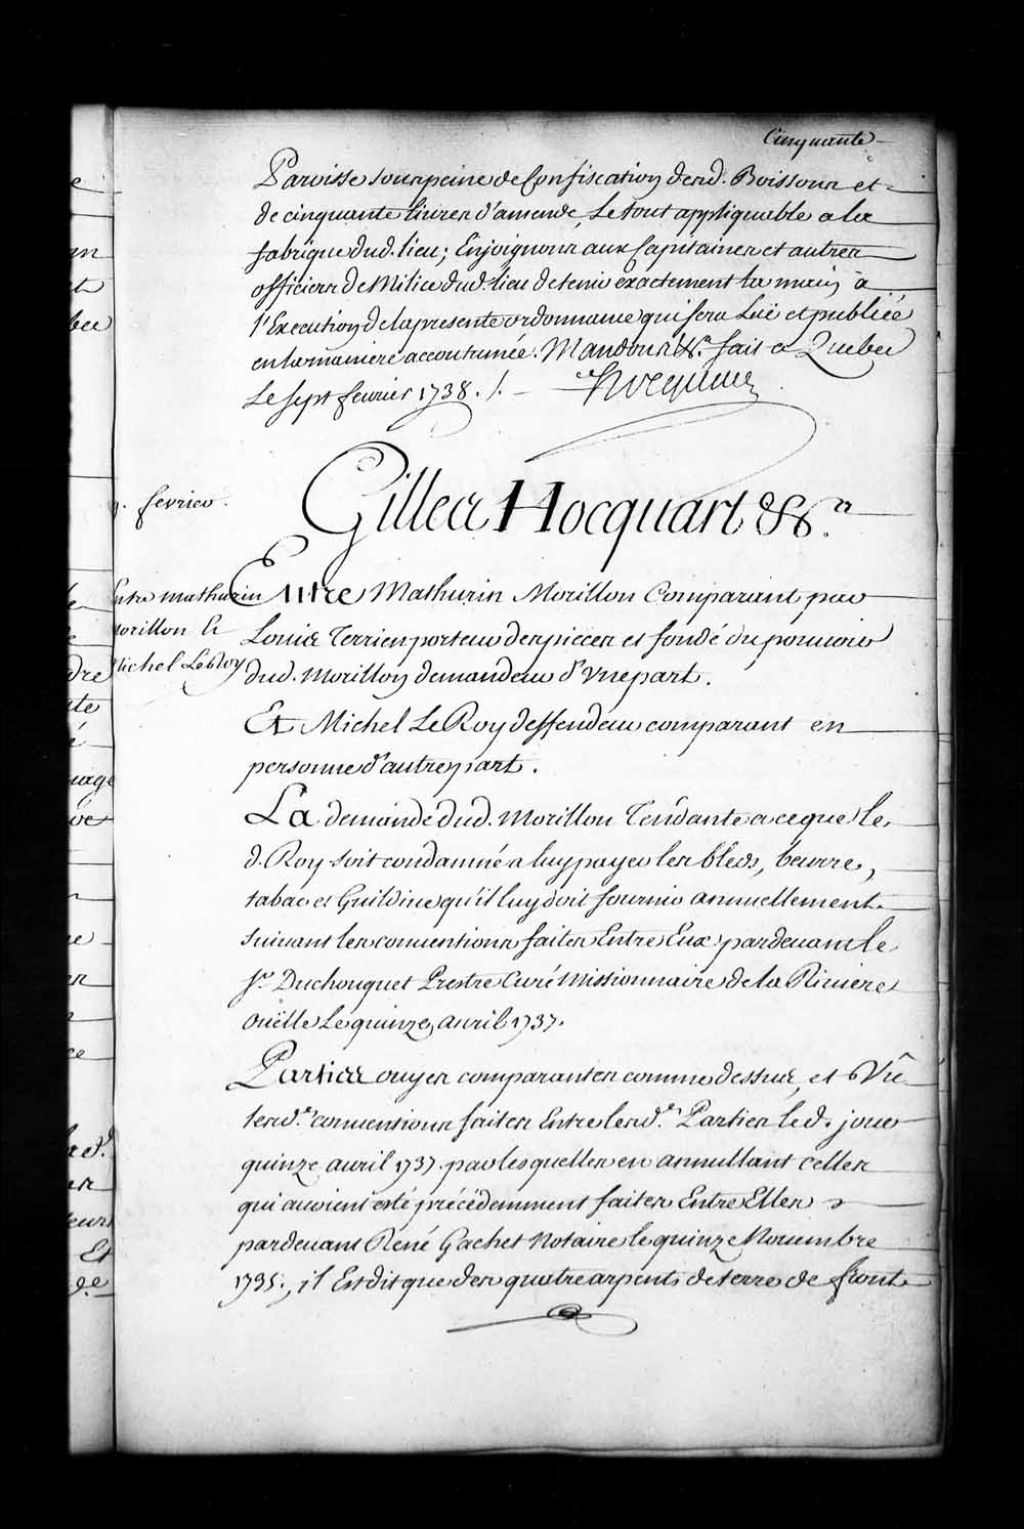 Cinquante
Paroisse sous peine de Confiscation desd. Boissons et
de cinquante livres d'amende, Le tout appliquable a la
fabrique dud. lieu; Enjoignons aux Capitaines et autres
officiers de Milice dud. lieu de tenir exactement la main a
l'Execution de la presente ordonnance qui sera Luë et publiée
en la maniere accoutumée. Mandons &c. fait a Quebec
Le sept fevrier 1738. /. Hocquart
fevrier.
Gilles Hocquart &c.a
Entre mathurin
Morillon Et
Michel LeRoy
Entre Mathurin Morillon Comparant par
Louis Terrien porteur des pieces et fondé du pouvoir
dud. Morillon demandeur d'Vne part.
Et Michel Le Roy deffendeur comparant en
personne d'autre part.
La demande dud. Morillon Tendante a ce que le
d. Roy soit condamné a luy payer les bleds, beurre,
tabac et Guildive qu'il luy doit fournir annuellement
suivant les conventions faites Entre Eux pardevant le
Sr. Duchouquet Prestre Curé Missionnaire de la Riviere
Oüelle Le quinze avril 1737.
Parties ouyes comparantes comme dessus, et Vû
lesd.es conventions faites Entre lesd.es Parties le d. jour
quinze avril 1737. par lesquelles en annullant celles
qui avoient esté précédemment faites Entre Elles
pardevant René Gachet Notaire le quinze Novembre
1735., il Est dit que des quatre arpents de terre de front